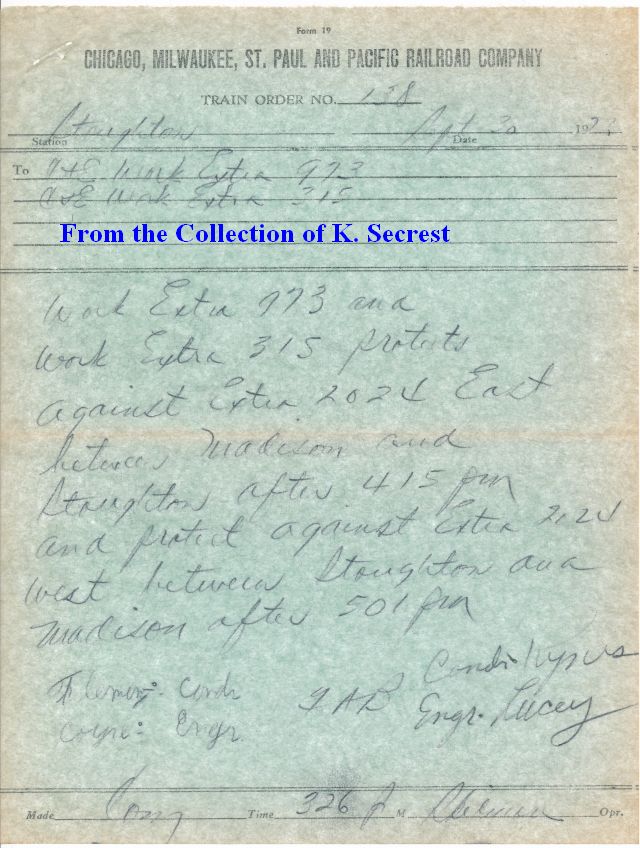 Form 19
CHICAGO, MILWAUKEE, ST. PAUL AND PACIFIC RAILROAD COMPANY
TRAIN ORDER NO. 138
Stoughton Sept 30 192
Station Date
To C&E Work Extra 973
C&E Work Extra 315
From the Collection of K. Secrest
Work Extra 973 and
Work Extra 315 protects
against Extra 2024 East
between Madison and
Stoughton after 415 pm
and protect against Extra 2024
west between Stoughton and
Madison after 501 pm
Condr
Engr. Lucey
Condr
Coyne: Engr
Made Com Time 326 P M Opr.